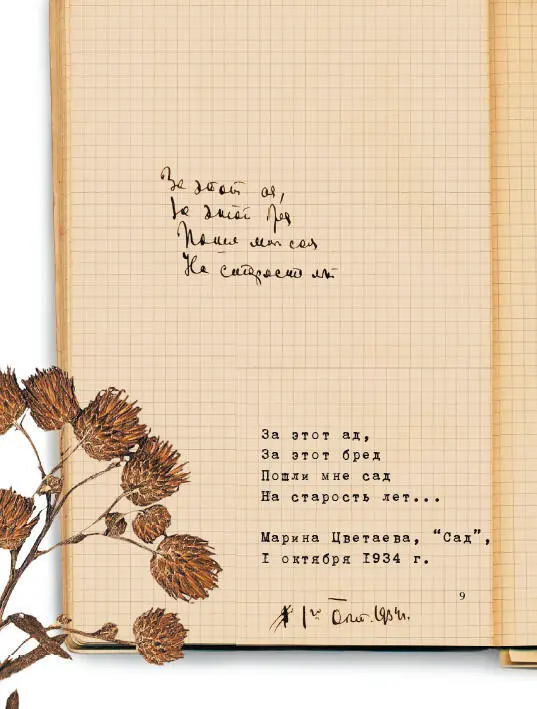 За этот ад,
За этот бред
Пошли мне сад
На старость лет
За этот ад,
За этот бред
Пошли мне сад
На старость лет...
Марина Цветаева, “Сад”,
1 октября 1934 г.
9
1го Окт. 1934г.